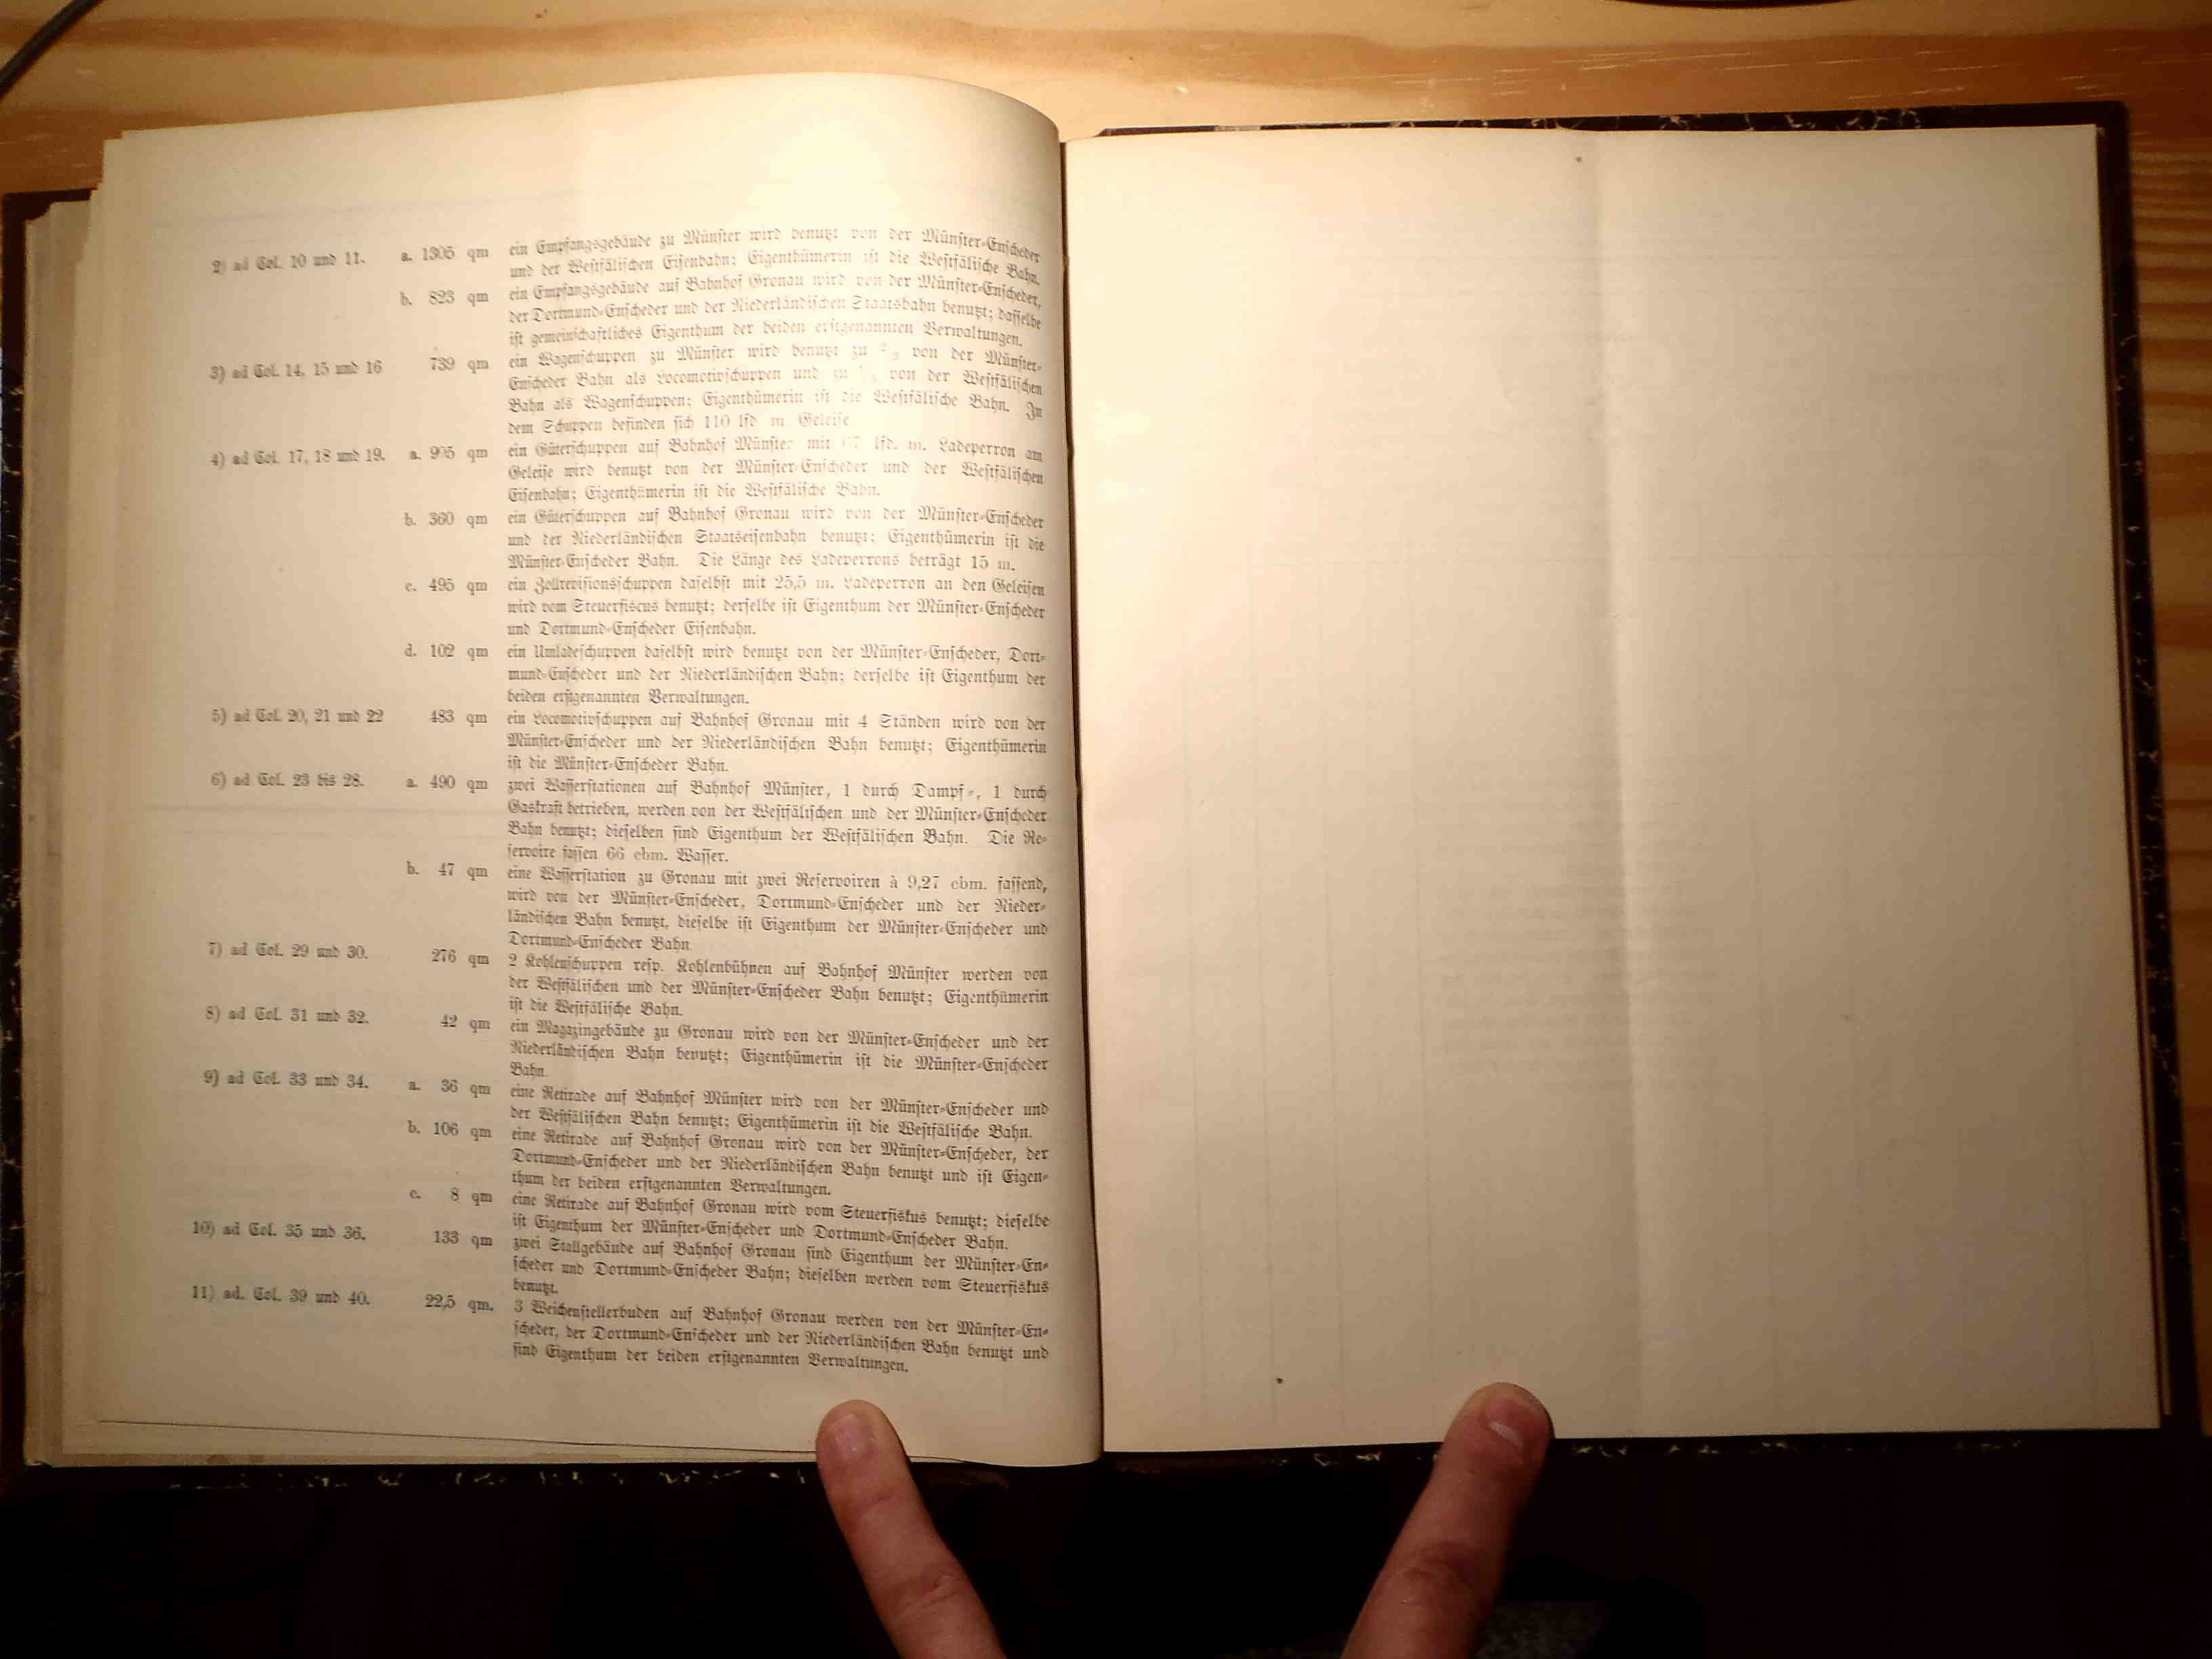 2) ad Col. 10 und 11. a. 1305 qm ein Empfangsgebäude zu Münſter wird benutzt von der Münſter-Enſcheder
und der Weſtfäliſchen Eiſenbahn; Eigenthümerin iſt die Weſtfäliſche Bahn.
b. 823 qm ein Empfangsgebäude auf Bahnhof Gronau wird von der Münſter-Enſcheder,
der Dortmund-Enſcheder und der Niederländiſchen Staatsbahn benutzt; daſſelbe
iſt gemeinſchaftliches Eigenthum der beiden erſtgenannten Verwaltungen.
3) ad Col. 14, 15 und 16 739 qm ein Wagenſchuppen zu Münſter wird benutzt zu von der Münſter-
Enſcheder Bahn als Locomotivſchuppen und zu von der Weſtfäliſchen
Bahn als Wagenſchuppen; Eigenthümerin iſt die Weſtfäliſche Bahn. In
dem Schuppen befinden ſich 110 lfd m Geleiſe
4) ad Col. 17, 18 und 19. a. 905 qm ein Güterſchuppen auf Bahnhof Münſter mit lfd. m. Ladeperron am
Geleiſe wird benutzt von der Münſter-Enſcheder und der Weſtfäliſchen
Eiſenbahn; Eigenthümerin iſt die Weſtfäliſche Bahn.
b. 360 qm ein Güterſchuppen auf Bahnhof Gronau wird von der Münſter-Enſcheder
und der Niederländiſchen Staatseiſenbahn benutzt; Eigenthümerin iſt die
Münſter-Enſcheder Bahn. Die Länge des Ladeperrons beträgt 15 m.
c. 495 qm ein Zollreviſionsſchuppen daſelbſt mit 25,5 m. Ladeperron an den Geleiſen
wird vom Steuerfiscus benutzt; derſelbe iſt Eigenthum der Münſter-Enſcheder
und Dortmund-Enſcheder Eiſenbahn.
d. 102 qm ein Umladeſchuppen daſelbſt wird benutzt von der Münſter-Enſcheder, Dort-
mund-Enſcheder und der Niederländiſchen Bahn; derſelbe iſt Eigenthum der
beiden erſtgenannten Verwaltungen.
5) ad Col. 20, 21 und 22 483 qm ein Locomotivſchuppen auf Bahnhof Gronau mit 4 Ständen wird von der
Münſter-Enſcheder und der Niederländiſchen Bahn benutzt; Eigenthümerin
iſt die Münſter-Enſcheder Bahn.
6) ad Col. 23 bis 28. a. 490 qm zwei Waſſerſtationen auf Bahnhof Münſter, 1 durch Dampf-, 1 durch
Gaskraft betrieben, werden von der Weſtfäliſchen und der Münſter-Enſcheder
Bahn benutzt; dieſelben ſind Eigenthum der Weſtfäliſchen Bahn. Die Re-
ſervoire faſſen 66 cbm. Waſſer.
b. 47 qm eine Waſſerſtation zu Gronau mit zwei Reſervoiren à 9,27 cbm. faſſend,
wird von der Münſter-Enſcheder, Dortmund-Enſcheder und der Nieder-
ländiſchen Bahn benutzt, dieſelbe iſt Eigenthum der Münſter-Enſcheder und
Dortmund-Enſcheder Bahn
7) ad Col. 29 und 30. 276 qm 2 Kohlenſchuppen reſp. Kohlenbühnen auf Bahnhof Münſter werden von
der Weſtfäliſchen und der Münſter-Enſcheder Bahn benutzt; Eigenthümerin
iſt die Weſtfäliſche Bahn.
8) ad Col. 31 und 32. 42 qm ein Magazingebäude zu Gronau wird von der Münſter-Enſcheder und der
Niederländiſchen Bahn benutzt; Eigenthümerin iſt die Münſter-Enſcheder
Bahn.
9) ad Col. 33 und 34. a. 36 qm eine Retirade auf Bahnhof Münſter wird von der Münſter-Enſcheder und
der Weſtfäliſchen Bahn benutzt; Eigenthümerin iſt die Weſtfäliſche Bahn.
b. 106 qm eine Retirade auf Bahnhof Gronau wird von der Münſter-Enſcheder, der
Dortmund-Enſcheder und der Niederländiſchen Bahn benutzt und iſt Eigen-
thum der beiden erſtgenannten Verwaltungen.
c. 8 qm eine Retirade auf Bahnhof Gronau wird vom Steuerfiskus benutzt; dieſelbe
iſt Eigenthum der Münſter-Enſcheder und Dortmund-Enſcheder Bahn.
10) ad Col. 35 und 36. 133 qm zwei Stallgebäude auf Bahnhof Gronau ſind Eigenthum der Münſter-En-
ſcheder und Dortmund-Enſcheder Bahn; dieſelben werden vom Steuerfiskus
benutzt.
11) ad. Col. 39 und 40. 22,5 qm. 3 Weichenſtellerbuden auf Bahnhof Gronau werden von der Münſter-En-
ſcheder, der Dortmund-Enſcheder und der Niederländiſchen Bahn benutzt und
ſind Eigenthum der beiden erſtgenannten Verwaltungen.